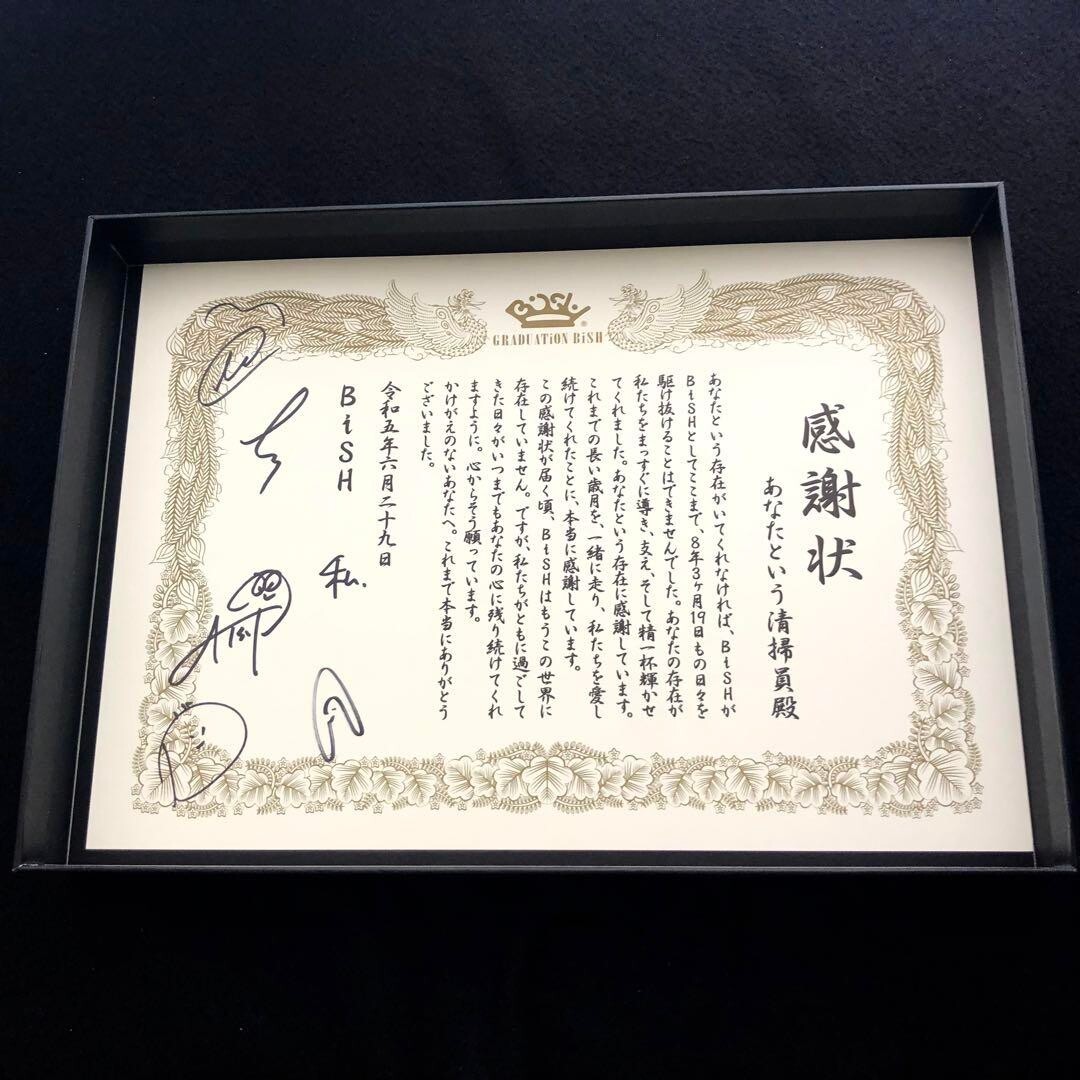 BiSH
GRADUATiON BiSH
感謝状
あなたという清掃員殿
あなたという存在がいてくれなければ、BiSHが
BiSHとしてここまで、8年3ヶ月19日もの日々を
駆け抜けることはできませんでした。あなたの存在が
私たちをまっすぐに導き、支え、そして精一杯輝かせ
てくれました。あなたという存在に感謝しています。
これまでの長い歳月を、一緒に走り、私たちを愛し
続けてくれたことに、本当に感謝しています。
この感謝状が届く頃、BiSHはもうこの世界に
存在していません。ですが、私たちがともに過ごして
きた日々がいつまでもあなたの心に残り続けてくれ
ますように。心からそう願っています。
かけがえのないあなたへ。これまで本当にありがとう
ございました。
令和五年六月二十九日
BiSH
私.